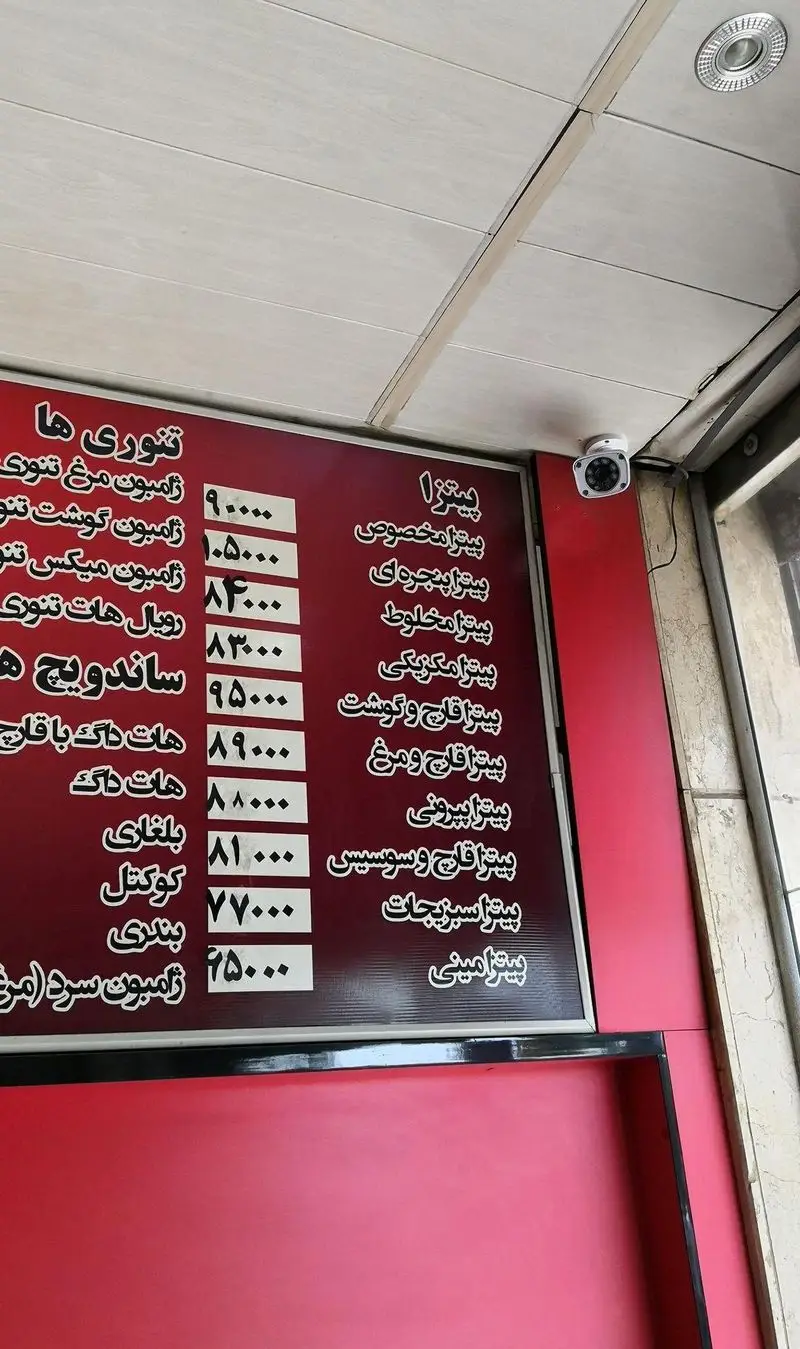 پیتزا
پیتزا مخصوص ۹۰۰۰۰
پیتزا پنجره ای ۱۰۵۰۰۰
پیتزا مخلوط ۸۴۰۰۰
پیتزا مکزیکی ۸۳۰۰۰
پیتزا قارچ و گوشت ۹۵۰۰۰
پیتزا قارچ و مرغ ۸۹۰۰۰
پیتزا پپرونی ۸۸۰۰۰
پیتزا قارچ و سوسیس ۸۱۰۰۰
پیتزا سبزیجات ۷۷۰۰۰
پیتزا مینی ۶۵۰۰۰
تنوری ها
ژامبون مرغ تنوری
ژامبون گوشت
ژامبون میکس
رویال هات تنوری
ساندویچ
هات داگ با قارچ
هات داگ
بلغاری
کوکتل
بندری
ژامبون سرد (مرغ